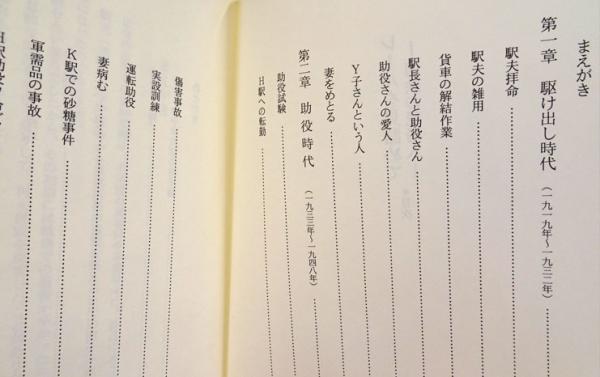 まえがき
第一章 駆け出し時代（一九一九年〜一九三二年）
駅夫拝命
駅夫の雑用
貨車の解結作業
駅長さんと助役さん
助役さんの愛人
Y子さんという人
妻をめとる
第二章 助役時代（一九三三年〜一九四八年）
助役試験
H駅への転勤
傷害事故
実設訓練
運転助役
妻病む
K駅での砂糖事件
軍需品の事故